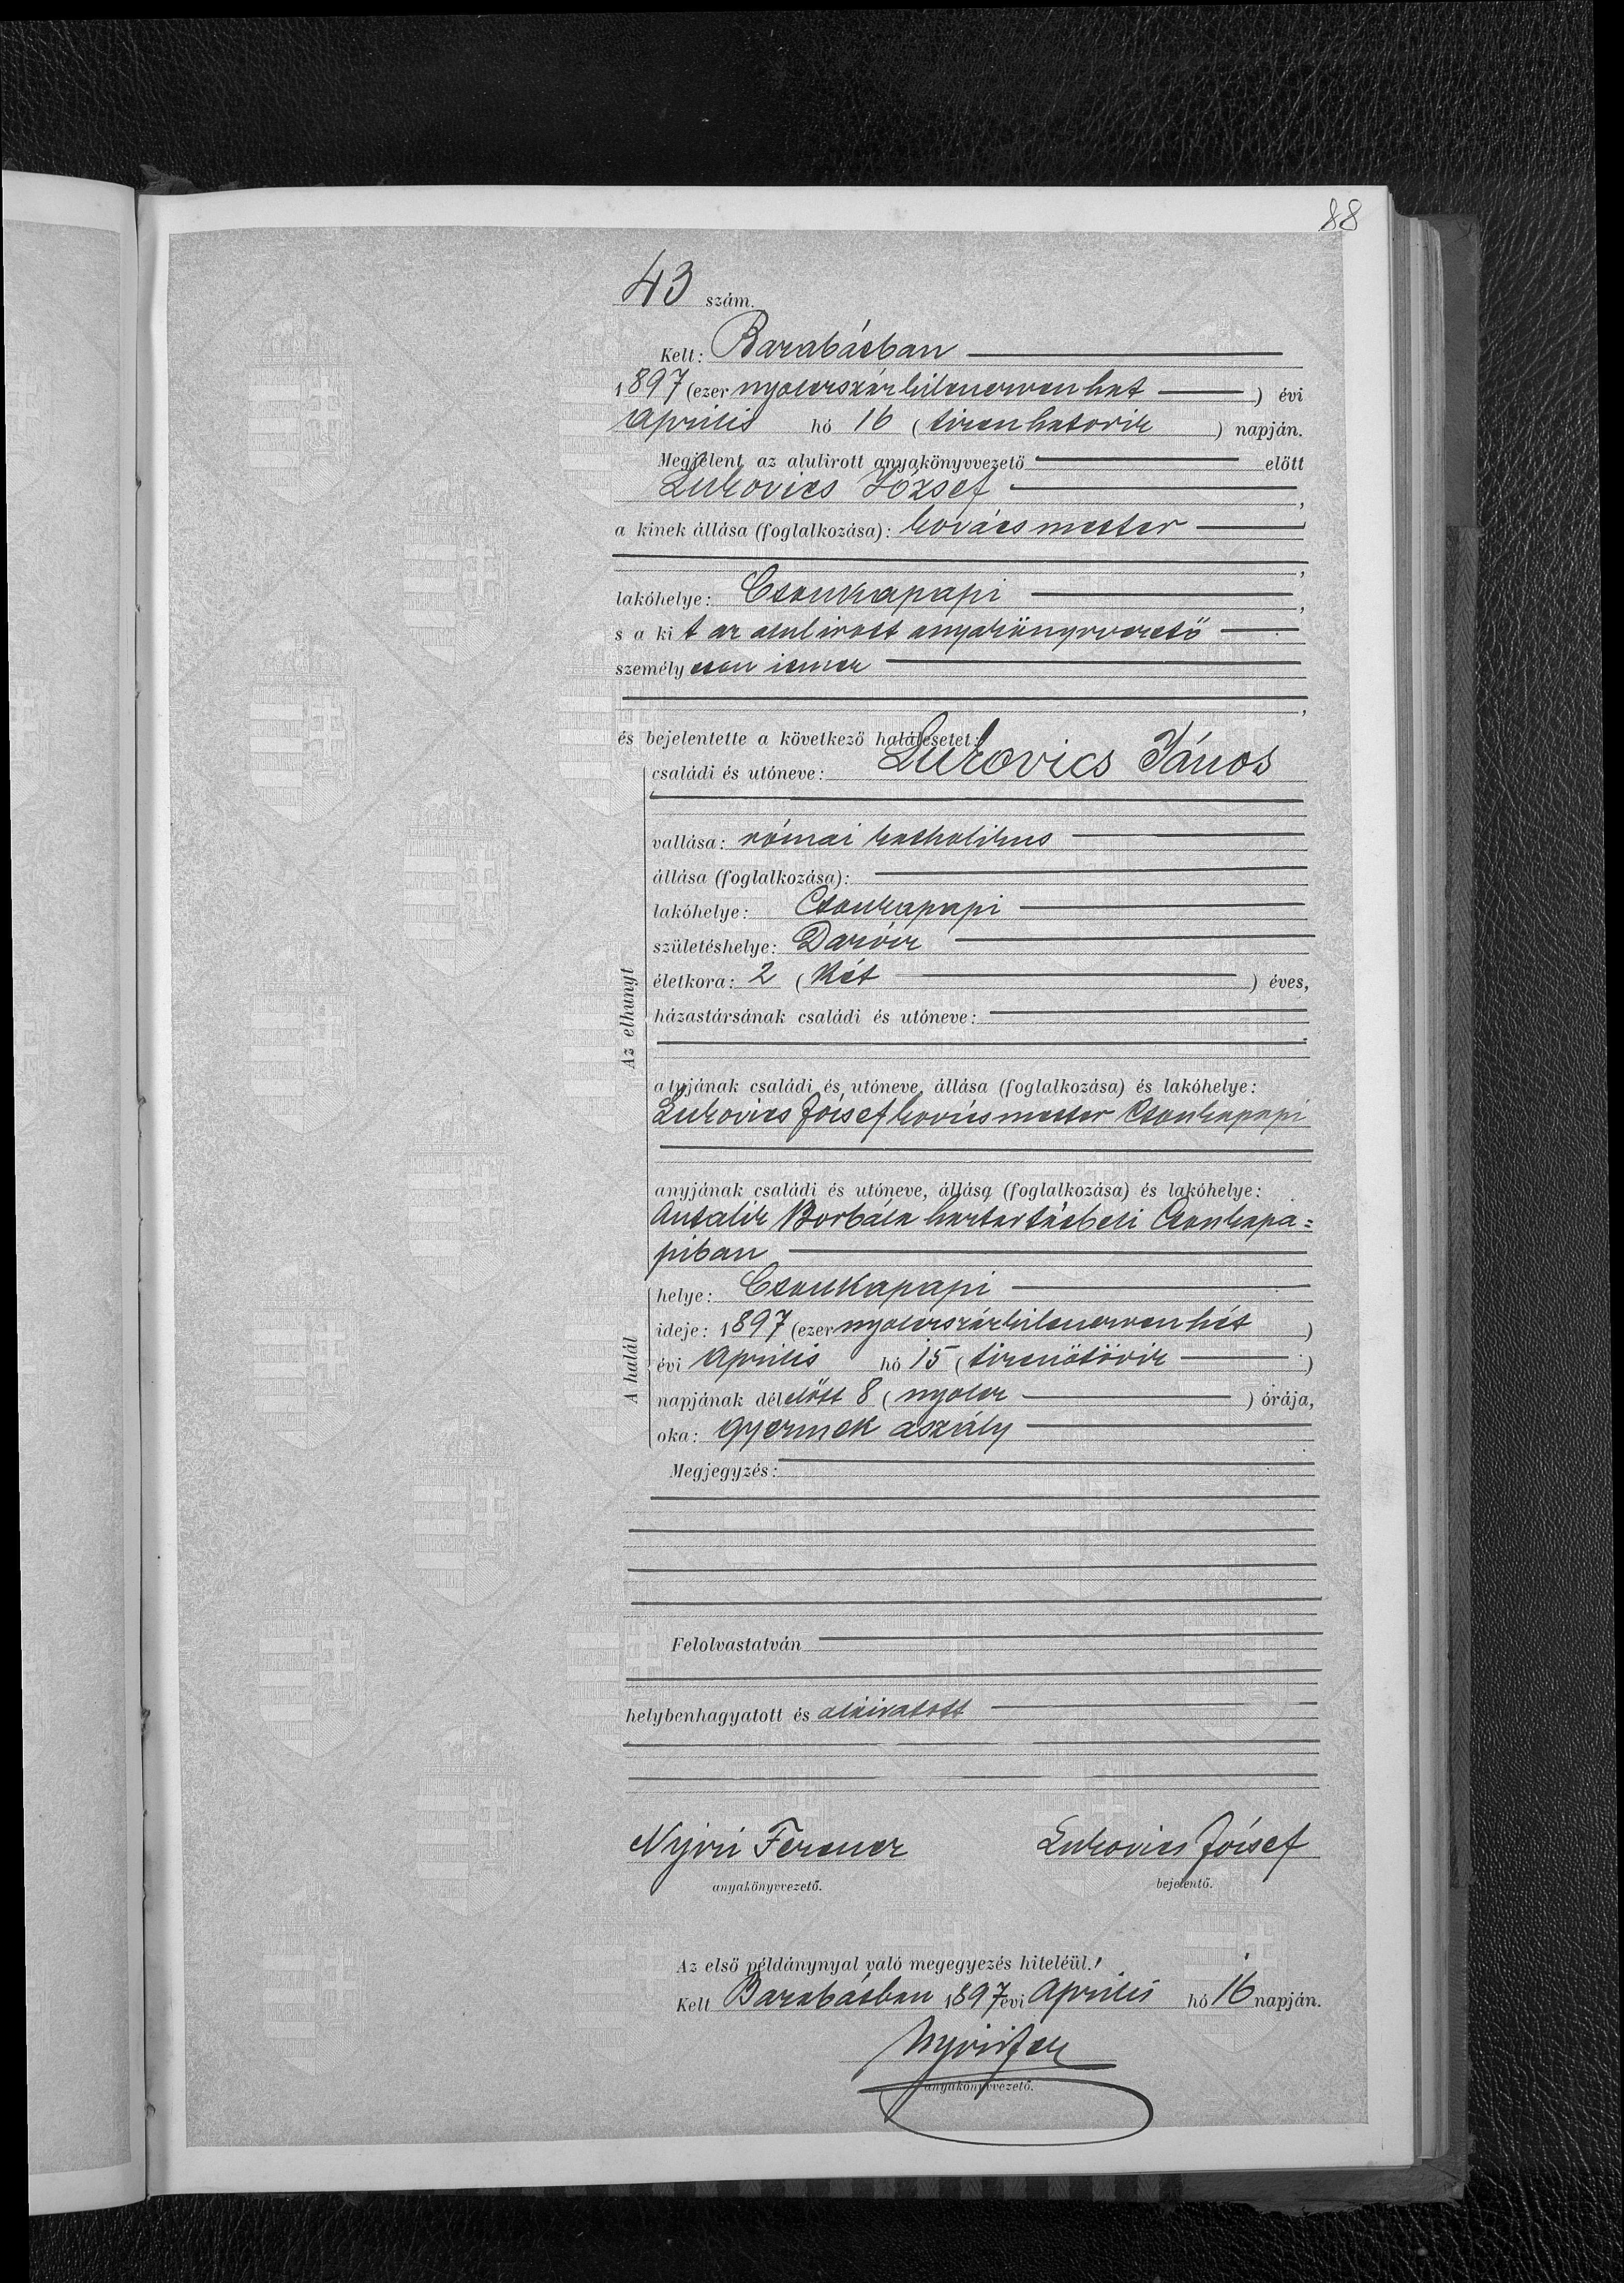 88
43 szám.
Kelt: Barabásban
1897 (ezer nyolczszázkilenczvenhet) évi
április hó 16 (tizenhatodik) napján.
Megjelent az alulirott anyakönyvvezető előtt
Lukovics József,
a kinek állása (foglalkozása): kovácsmester
,
lakóhelye: Csonkapapi,
s a kit az alulirott anyakönyvvezető
személyesen ismer
,
és bejelentette a következő halálesetet:
családi és utóneve: Lukovics János
vallása: római katholikus
állása (foglalkozása):
lakóhelye: Csonkapapi
születéshelye:
életkora: 2 (Két) éves,
házastársának családi és utóneve:
Az elhunyt
atyjának családi és utóneve, állása (foglalkozása) és lakóhelye:
Lukovics József kovácsmester Csonkapapi
anyjának családi és utóneve, állása (foglalkozása) és lakóhelye:
Antalik Borbála háztartásbeli Csonkapa=
piban
helye: Csonkapapi
ideje: 1897 (ezer nyolczszázkilenczvenhét)
évi április hó 15 (tizenötödik)
A halál
napjának délelőtt 8 (nyolcz) órája,
oka: gyermek aszály
Megjegyzés:
Felolvastatván
helybenhagyatott és aláiratott
Nyiri Ferencz Lukovics József
anyakönyvvezető. bejelentő.
Az első példánynyal való megegyezés hiteléül.
Kelt Barabásban 1897 évi április hó 16 napján.
anyakönyvvezető.